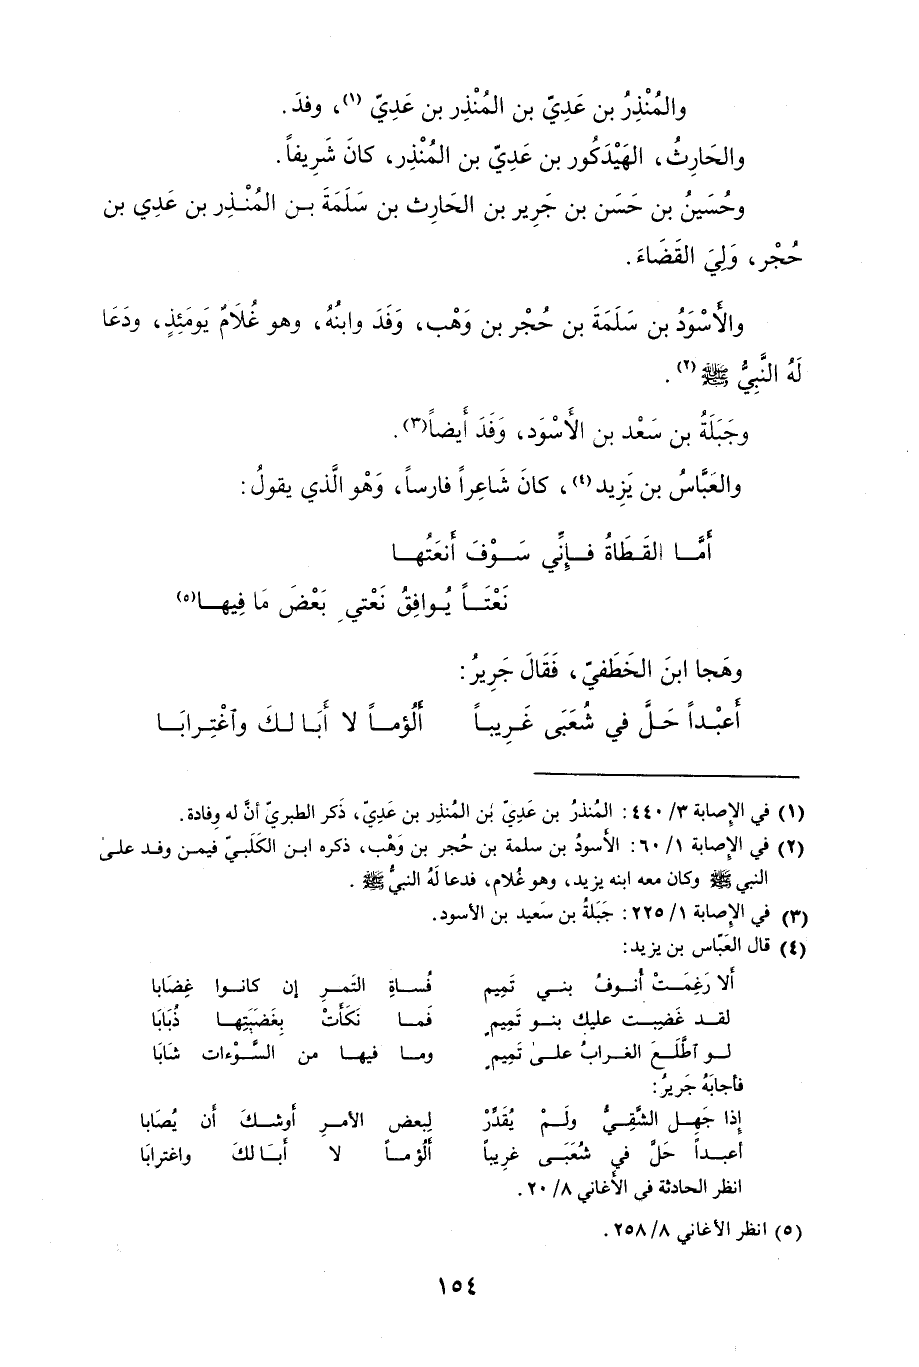 والمُنْذِرُ بن عَدِيّ بن المُنْذِر بن عَدِيّ (١)، وفدَ.
والحَارِثُ، الهَيْدَكُور بن عَدِيّ بن المُنْذِر، كانَ شَرِيفاً.
وحُسَيْنُ بن حَسَن بن جَرِير بن الحَارِث بن سَلَمَةَ بن المُنْذِر بن عَدِي بن
حُجْر، وَلِيَ القَضَاءَ.
والأَسْوَدُ بن سَلَمَةَ بن حُجْر بن وَهْب، وَفَدَ وابنُهُ، وهو غُلَامٌ يَومَئِذٍ، ودَعَا
لَهُ النَّبِيُّ ﷺ (٢).
وجَبَلَةُ بن سَعْد بن الأَسْوَد، وَفَدَ أَيضاً(٣).
والعَبَّاسُ بن يَزِيد(٤)، كانَ شَاعِراً فارساً، وَهْو الَّذي يقولُ:
أَمَّا القَطَاةُ فإِنِّي سَوْفَ أَنعَتُها
نَعْتَاً يُوافِقُ نَعْتي بَعْضَ مَا فِيها(٥)
وهَجا ابنَ الخَطَفيّ، فَقَالَ جَرِيرُ:
أَعبْداً حَلَّ في شُعَبَى غَرِيباً أَلُؤماً لا أَبَا لكَ وٱغْتِرابَا
(١) في الإصابة ٣/ ٤٤٠: المُنذرُ بن عَدِيّ بُن المُنذِر بن عَدِيّ، ذَكر الطبريّ أنَّ له وِفادة.
(٢) في الإصابة ١/ ٦٠: الأسودُ بن سلمة بن حُجر بن وَهْب، ذكره ابن الكَلَبيّ فيمن وفد على
النبي ﷺ وكان معه ابنه يزيد، وهو غُلام، فدعا لَهُ النبيُّ ﷺ.
(٣) في الإصابة ١/ ٢٢٥: جَبَلةُ بن سَعيد بن الأسود.
(٤) قال العَبّاس بن يزيد:
ألا رَغِمَتْ أُنوفُ بني تَمِيم فُساةِ التَمرِ إن كانوا غِضَابا
لقد غَضِبت عليك بنو تَمِيمٍ فَما نَكَأَتْ بِغَضْبَتِها ذُبَابَا
لو ٱطَّلَعَ الغرابُ على تَمِيمٍ وما فيها من السَّوْءات شَابَا
فأجابَهُ جَرِيرُ:
إِذا جَهِل الشَّقِيُّ ولَمْ يُقَدِّرْ لِبعض الأمرِ أوشكَ أن يُصَابا
أعبداً حَلَّ في شُعَبَى غريباً أَلُؤماً لا أبَا لكَ واغترابَا
انظر الحادثة في الأغاني ٨/ ٢٠.
(٥) انظر الأغاني ٨/ ٢٥٨.
١٥٤